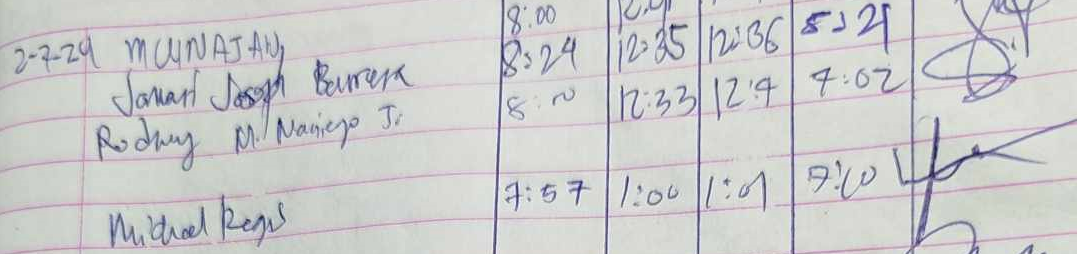 8:00
2-7-24 MUNAJAN 8:24 12:35 12:36 5:21
Joseph Barrera 8:10 12:33 12:4 7:02
Rodney M. Naniego Jr.
Michael Regis 7:57 1:00 1:01 7:00